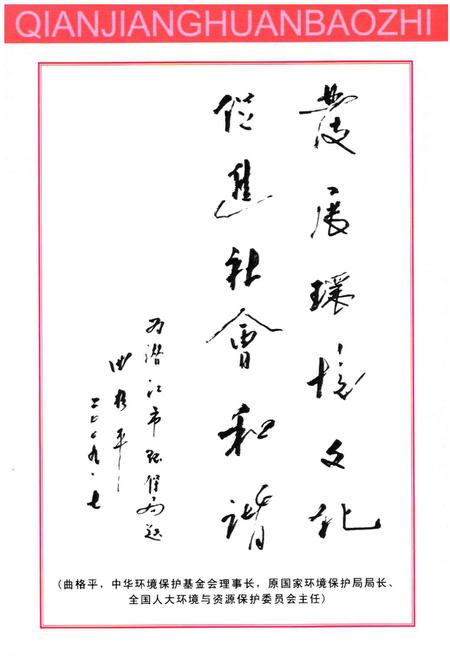 QIANJIANGHUANBAOZHI
發展環境文化
促進社會和諧
为潜江市环保局题
曲格平
二〇〇九·七
(曲格平,中华环境保护基金会理事长,原国家环境保护局局长、
全国人大环境与资源保护委员会主任)